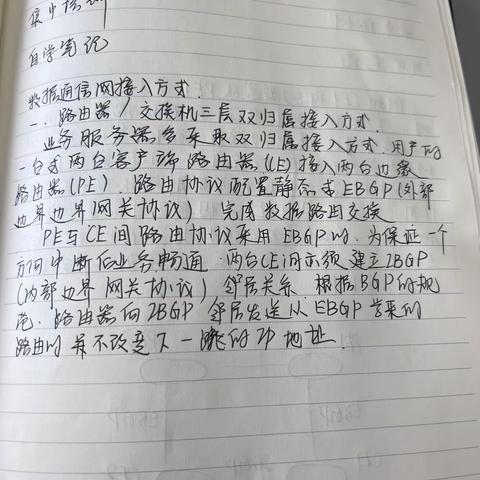 集中培训
自学笔记
数据通信网接入方式.
一. 路由器/交换机三层双归属接入方式.
业务服务器多采取双归属接入方式. 用户的
一台或两台客户端路由器(CE)接入两台边缘
路由器(PE). 路由协议配置静态或EBGP(外部
边界边界网关协议) 完成数据路由交换
PE与CE间路由协议采用EBGP时. 为保证一个
方向中断后业务畅通. 两台CE间示须建立IBGP
(内部边界网关协议) 邻居关系. 根据BGP的规
范. 路由器向IBGP 邻居发送从EBGP学来的
路由时 并不改变下一跳的IP地址.
EBGP
EBGP